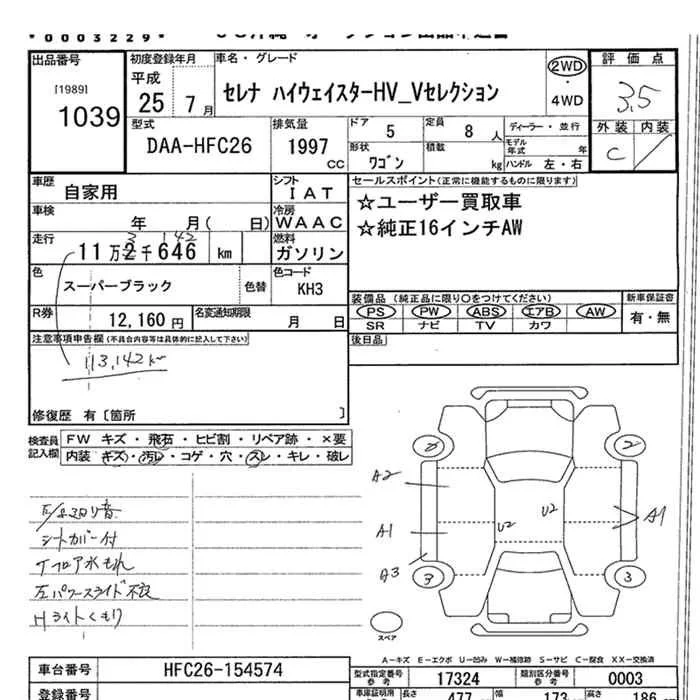 *0003229*
出品番号
[1989]
1039
初度登録年月
平成
25 7月
車名・グレード
セレナ ハイウェイスターHV_Vセレクション
2WD
・
4WD
評価点
3.5
外装 内装
C
型式
DAA-HFC26
排気量
1997
CC
ドア
5
定員
8 人
形状
ワゴン
積載
kg
ディーラー・並行
モデル年式 年
ハンドル 左・右
車歴
自家用
シフト
IAT
車検
年 月( 日)
冷房
WAAC
走行
11万2千646 km
3 142
燃料
ガソリン
色
スーパーブラック
色替
色コード
KH3
R券
12,160円
名変通知期限
月 日
セールスポイント(正常に機能するものに限ります)
☆ユーザー買取車
☆純正16インチAW
装備品 (純正品に限り○をつけてください)
PS PW ABS エアB AW
SR ナビ TV カワ
新車保証書
有・無
後日品
注意事項申告欄(不具合内容等は具体的に記入して下さい)
113,142km
修復歴 有[箇所 ]
検査員記入欄
FW キズ・飛石・ヒビ割・リペア跡・×要
内装 キズ・汚レ・コゲ・穴・スレ・キレ・破レ
シートカバー付
フロア水もれ
左パワースライド不良
Hライトくもり
A2
A1
A3
U2
U2
A1
2
3
3
スペア
A-キズ E-エクボ U-凹み W-補修跡 S-サビ C-腐食 XX-交換済
車台番号
HFC26-154574
登録番号
型式指定番号
参考
17324
類別区分番号
参考
0003
車庫証明用
長さ
477
幅
173
高さ
186